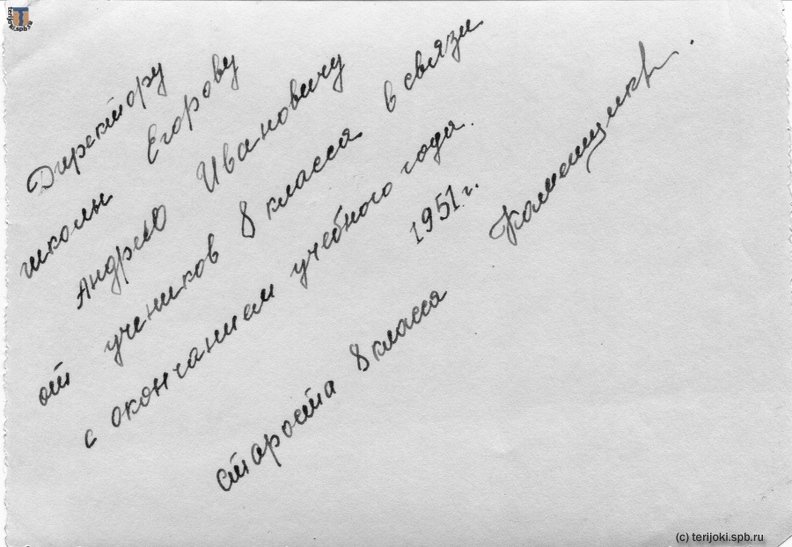 Директору
школы Егорову
Андрею Ивановичу
от учеников 8 класса в связи
с окончанием учебного года.
1951 г.
староста 8 класса
terijoki
spb.ru
(c) terijoki.spb.ru